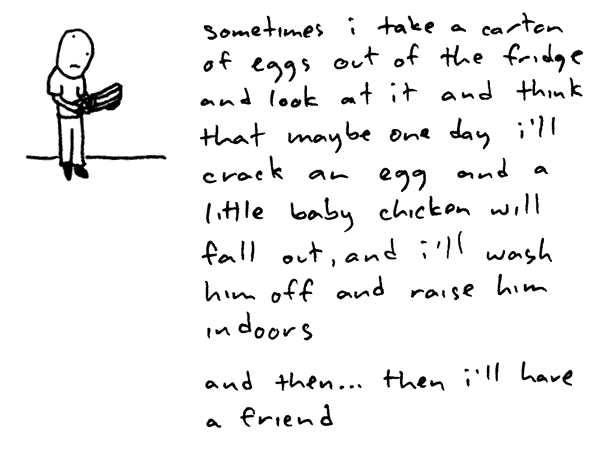 sometimes i take a carton
of eggs out of the fridge
and look at it and think
that maybe one day i'll
crack an egg and a
little baby chicken will
fall out, and i'll wash
him off and raise him
indoors
and then... then i'll have
a friend